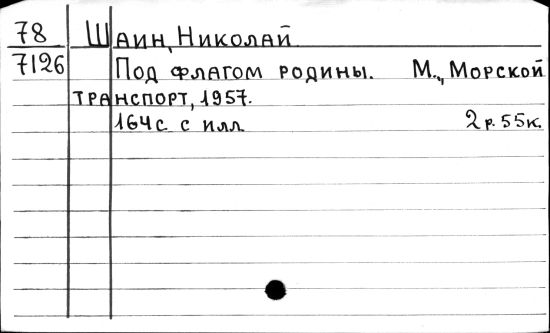 78 Шаин, Николай
7126 Под флагом родины. М., Морской
транспорт, 1957.
164с. с илл 2р. 55к.